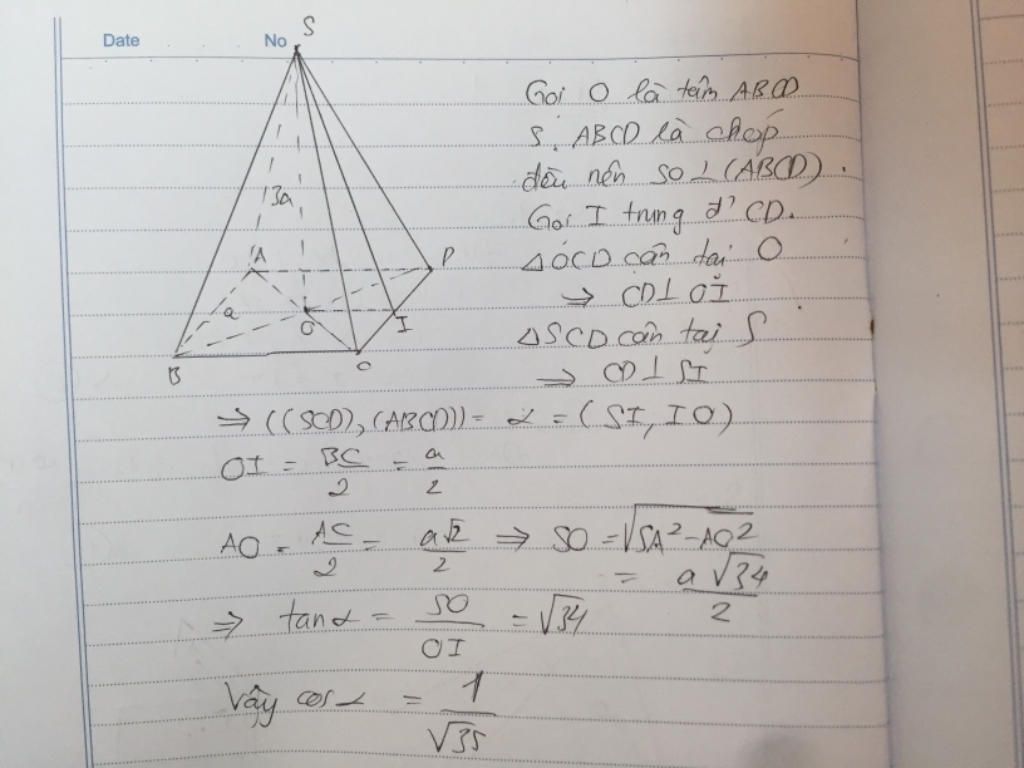 Date No
S
Gọi O là tâm ABCD
S. ABCD là chóp
đều nên SO ⊥ (ABCD).
3a
Gọi I trung đ' CD.
A D
△OCD cân tại O
⇒ CD ⊥ OI
a O I
△SCD cân tại S
B C
⇒ CD ⊥ SI
⇒ ((SCD), (ABCD)) = α = (SI, IO)
OI = BC/2 = a/2
AO = AC/2 = a√2/2 ⇒ SO = √(SA² - AO²)
= a√34/2
⇒ tan α = SO/OI = √34
Vậy cos α = 1/√35